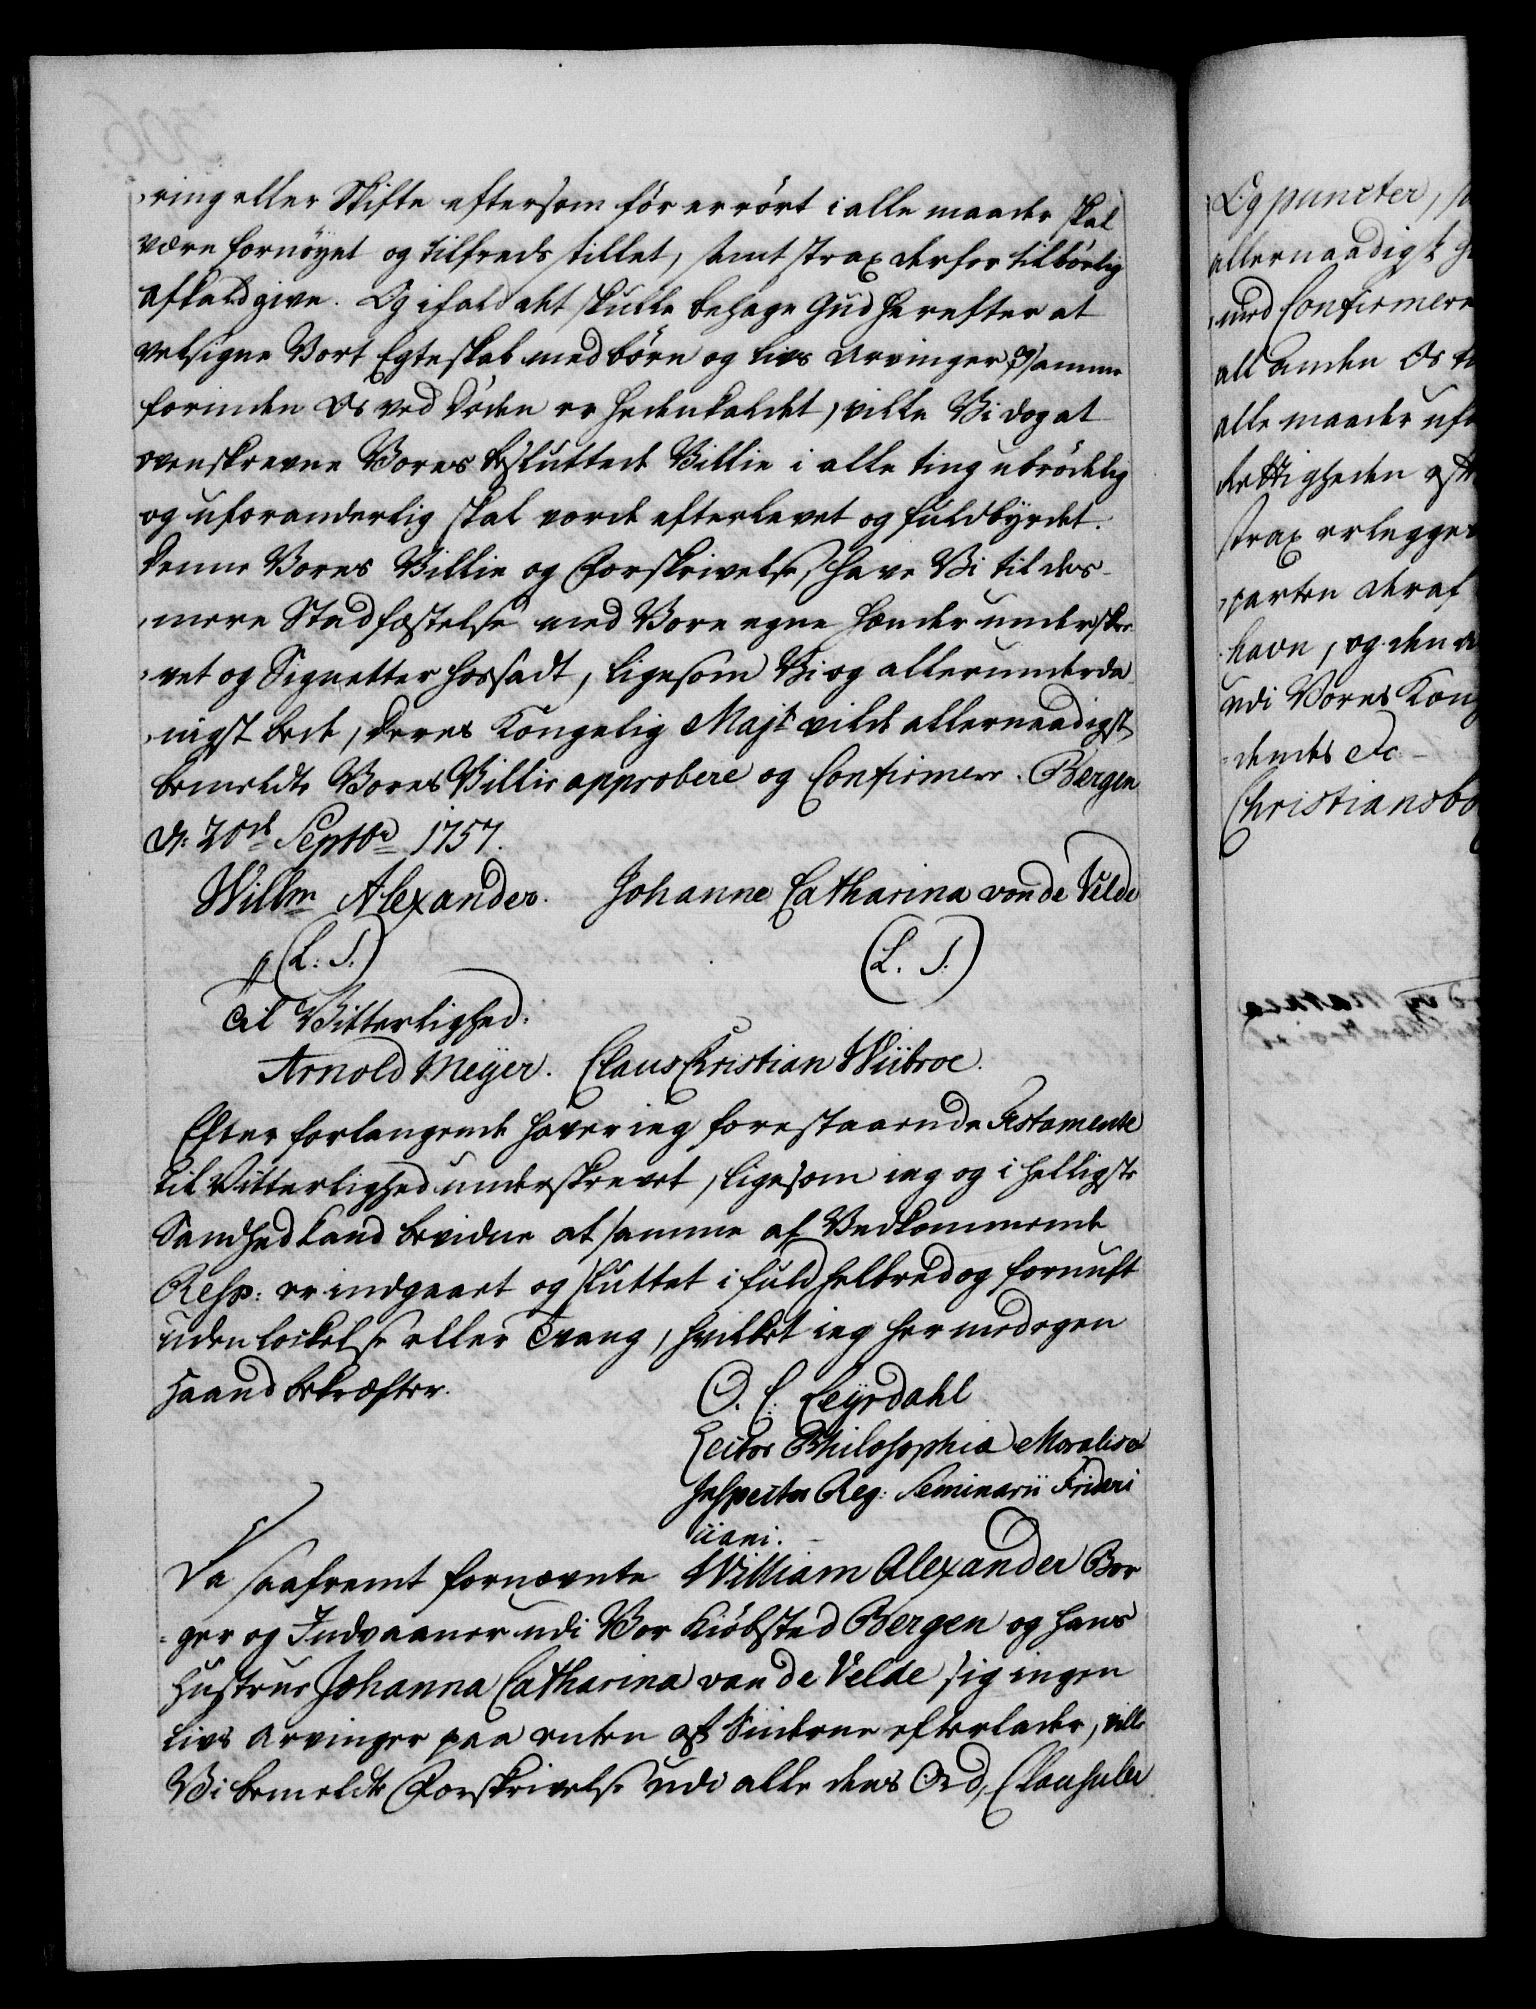 ring eller Skifte eftersom før er rørt i alle maader skal
være fornøyet og tilfreds stillet, samt strax derfor tilbørlig
afkald give. Og ifald det skulle behage Gud herefter at
velsigne Vort Egteskab med børn og livs Arvinger, og samme
forinden os ved Døden er hedenkaldet, ville Vi dog at
ovenskrevne Vores besluttede Villie i alle ting ubrødelig
og uforanderlig skal vorde efterlevet og fuldbyrdet.
Denne Vores Villie og Forskrivelse have Vi til des-
mere Stadfæstelse med Vore egne Hænder underskre-
vet og Signetter hossadt, ligesom Vi og allerunderda
nigst bede, Deres Kongelig Majt vilde allernaadigst
bemeldte Vores Villie approbere og Confirmere. Bergen
d: 20de Septbr 1757.
Willm Alexander. Johanne Catharina van de Velde
(L. S.) (L. S.)
Til Vitterlighed.
Arnold Meyer. Claus Christian Wiibroe.
Efter forlangende haver ieg forestaaende Testamente
til Vitterlighed underskrevet, ligesom ieg og i helligste
Sandhed kand bevidne at samme af Vedkommende
Resp: er indgaaet og sluttet i fuld helbred og fornuft
uden lockelse eller Tvang, hvilket ieg her med egen
Haand bekræfter.
O. C. Leyrdahl
Lector Philosophiæ Moralis &
Inspector Reg: Seminarii Frideri
ciani.
Da saafremt fornævnte William Alexander Bor
ger og Indvaaner udi Vor Kiøbsted Bergen og hans
Hustrue Johanna Catharina van de Velde sig ingen
livs Arvinger paa enten af Siderne efterlader, ville
Vi bemeldte Forskrivelse udi alle dens Ord, Clausuler
Og puncter, 
allernaadigst
med Confirmere
all anden Os
alle maader
strax erlegges
parten deraf
havn, og den
udi Vores Kong
dendes etc
Christiansbo